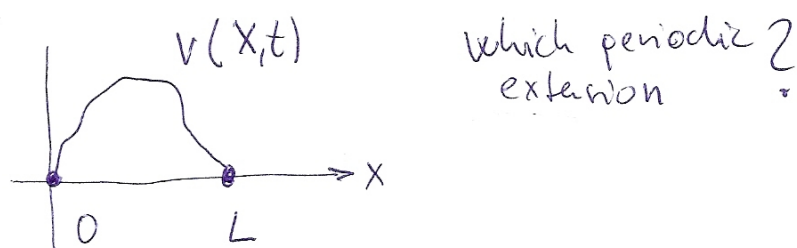 v(x,t)
which periodic ?
extension
x
0
L